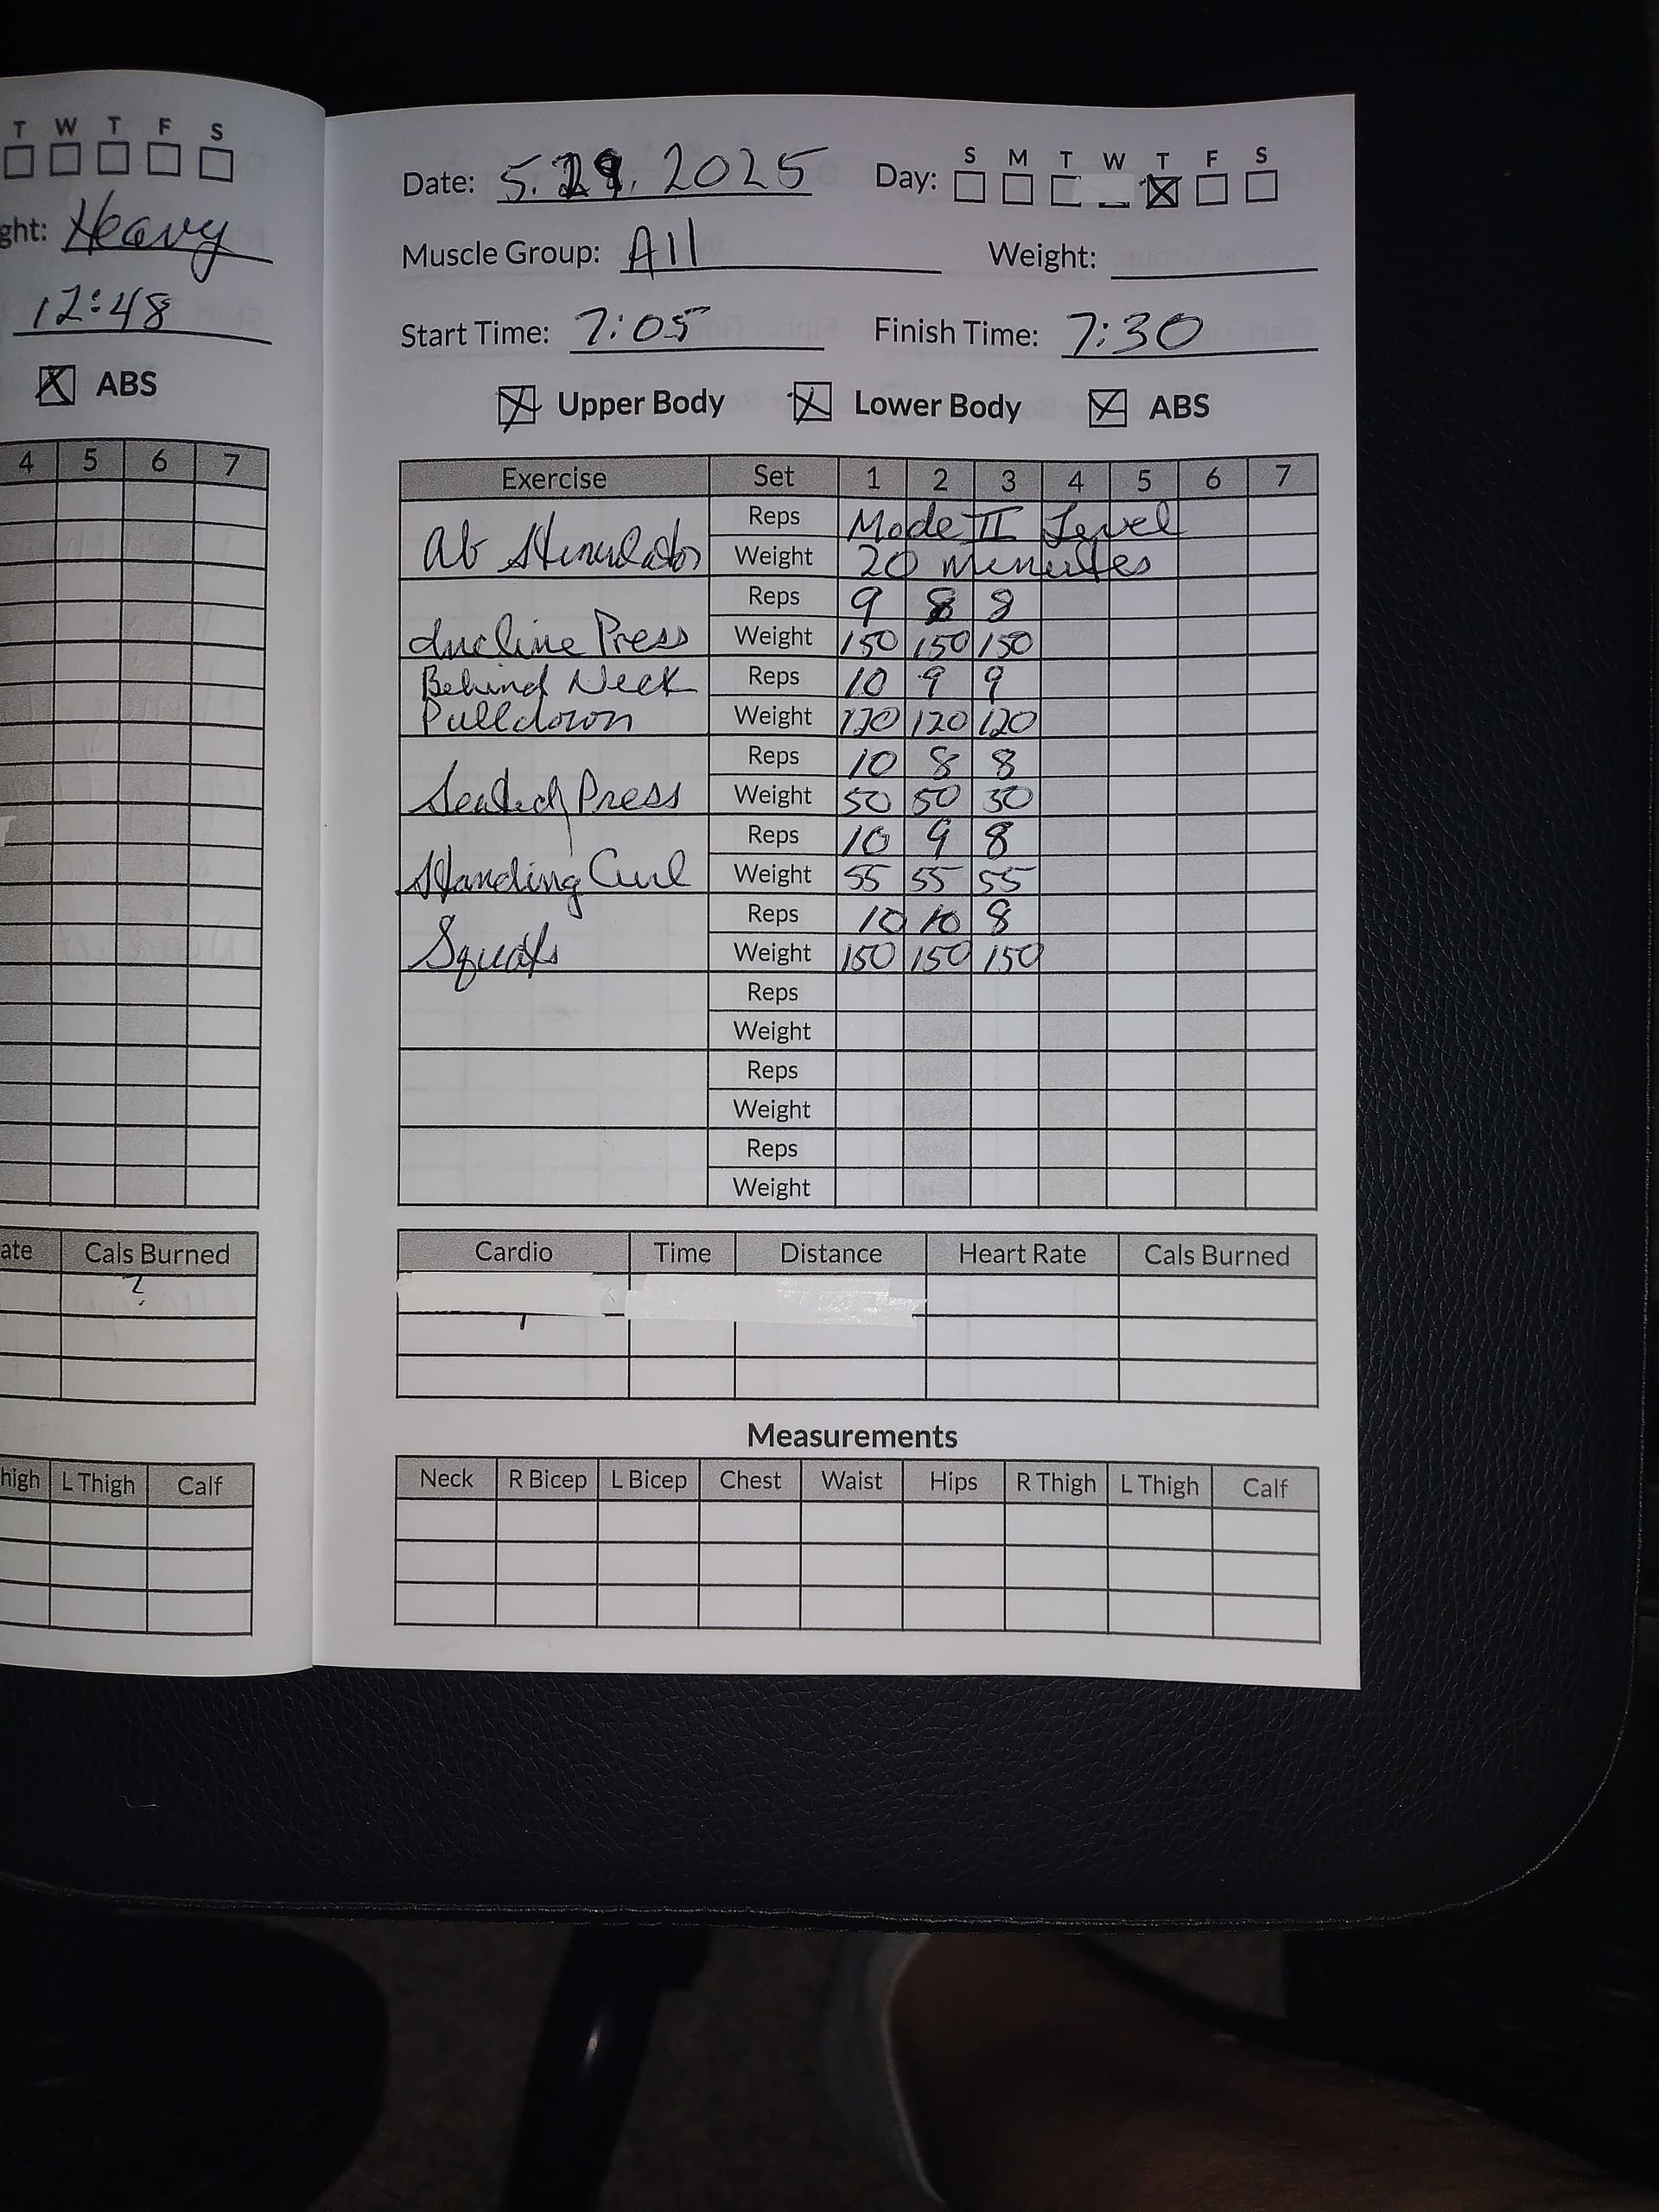 T W T F S
ght: Heavy
12:48
ABS
4 5 6 7
ate Cals Burned
?
high L Thigh Calf
Date: 5.29.2025 Day: S M T W T F S
Muscle Group: All Weight:
Start Time: 7:05 Finish Time: 7:30
Upper Body Lower Body ABS
Exercise Set 1 2 3 4 5 6 7
Ab Stimulator Reps Mode II Level
Weight 20 minutes
Incline Press Reps 9 8 8
Weight 150 150 150
Behind Neck Reps 10 9 9
Pulldown Weight 120 120
Seated Press Reps 10 8 8
Weight 50 50 50
Standing Curl Reps 10 9 8
Weight 55 55 55
Squats Reps 10 10 8
Weight 150 150 150
Reps
Weight
Reps
Weight
Reps
Weight
Cardio Time Distance Heart Rate Cals Burned
Measurements
Neck R Bicep L Bicep Chest Waist Hips R Thigh L Thigh Calf